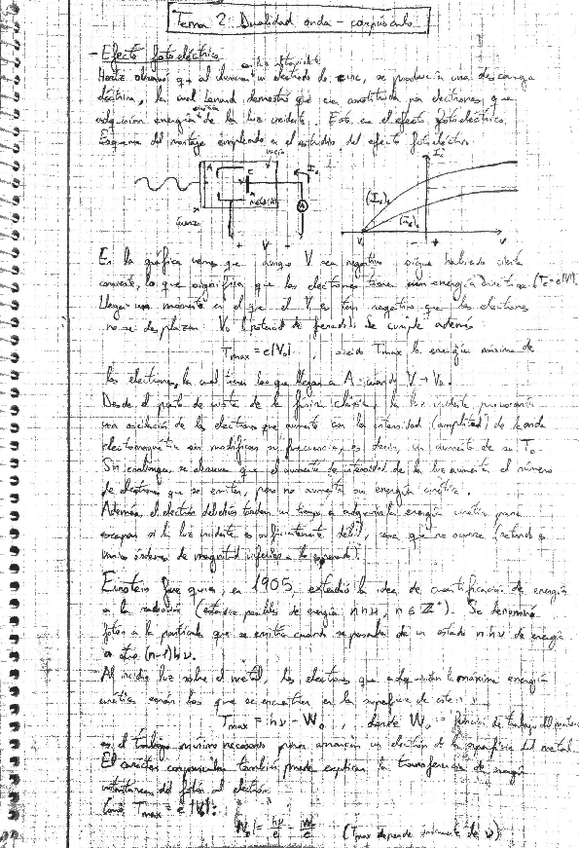 Tema 2: Dualidad onda - corpúsculo
- Efecto fotoeléctrico
Hertz observó q al iluminar un electrodo de cinc, se producía una descarga
eléctrica, la cual Lenard demostró que era constituida por electrones que
adquirían energía de la luz incidente. Este es el efecto fotoeléctrico.
Esquema del montaje empleado en el estudio del efecto fotoeléctrico
vacío
A
C
I
metal
A
cuarzo
+ V -
I
(I₀)₂
(I₀)₁
V₀
- +
V
En la gráfica vemos que aunque V sea negativo sigue habiendo cierta
corriente, lo que significa que los electrones tienen una energía cinética (T = e|V|).
Llega un momento en el que el V es tan negativo que los electrones
no se desplazan. V₀ (potencial de frenado). Se cumple además
Tmax = e|V₀| , siendo Tmax la energía máxima de
los electrones, la cual tienen los que llegan a A cuando V → V₀.
Desde el punto de vista de la física clásica, la luz incidente provocaría
una oscilación de los electrones que aumenta con la intensidad (amplitud) de la onda
electromagnética sin modificar su frecuencia, es decir, un aumento de su T₀.
Sin embargo, se observa que el aumento de intensidad de la luz aumenta el número
de electrones que se emiten, pero no aumenta su energía cinética.
Además, el electrón debería tardar un tiempo a adquirir la energía cinética para
escapar si la luz incidente es suficientemente débil, cosa que no ocurre (retardo
varios órdenes de magnitud inferior a lo esperado).
Einstein fue quien, en 1905, extendió la idea de cuantificación de energía
a la radiación (estados posibles de energía nhν, n ∈ Z⁺). Se denomina
fotón a la partícula que se emitía cuando se pasaba de un estado nhν de energía
a otro (n-1)hν.
Al incidir luz sobre el metal, los electrones que adquirirán la máxima energía
cinética serán los que se encuentren en la superficie de este
Tmax = hν - W₀ , donde W₀ = función de trabajo del metal
es el trabajo mínimo necesario para arrancar un electrón de la superficie del metal.
El carácter corpuscular también puede explicar la transferencia de energía
instantánea del fotón al electrón
Como Tmax = e|V₀|:
|V₀| = hν/e - W₀/e (Tmax depende únicamente de ν)